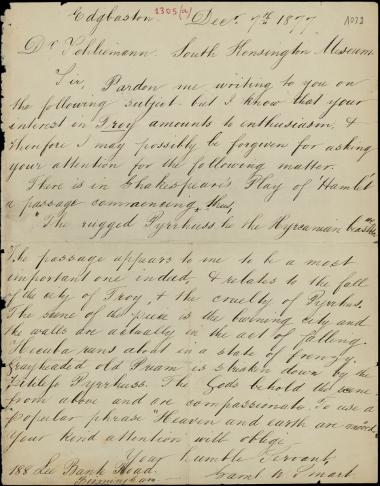 1305(a)
Edgbaston Decr 7th 1877
Dr Schliemann South Kensington Museum
Sir, Pardon me writing to you on
the following subject but I know that your
interest in Troy amounts to enthusiasm, &
therefore I may possibly be forgiven for asking
your attention for the following matter.
There is in Shakespeare's Play of Hamlet
a passage commencing thus,
"The rugged Pyrrhus he the Hyrcanian beast &c
The passage appears to me to be a most
important one indeed, & relates to the fall
of the city of Troy, & the cruelty of Pyrrhus.
The scene of the piece is the burning city and
the walls are actually in the act of falling.
Hecuba runs about in a state of frenzy.
Grayheaded old Priam is stricken down by the
Pyrrhus. The Gods behold the scene
from above and are compassionate. To use a
popular phrase "Heaven and earth are moved"
your kind attention will oblige
Your humble Servant,
188 Lee Bank Road. Saml W Smart
Birmingham